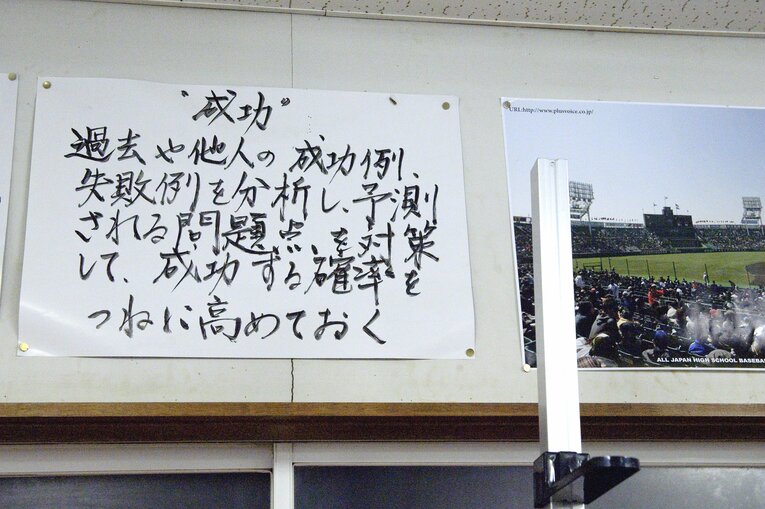 "成功"
過去や他人の成功例、
失敗例を分析し、予測
される問題点を対策
して、成功する確率を
つねに高めておく
URL:http://www.plusvoice.co.jp/
ALL JAPAN HIGH SCHOOL BASEBA